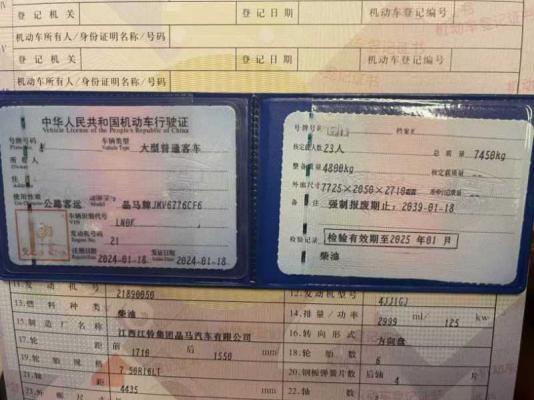 登记机关 登记日期 机动车登记编号
机动车所有人/身份证明名称/号码
登记机关 登记日期 机动车登记编号
机动车所有人/身份证明名称/号码
中华人民共和国机动车行驶证
Vehicle License of the People's Republic of China
号牌号码 车辆类型 大型普通客车
Vehicle Type
所有人
住址
使用性质 公路客运 晶马牌JMV6776CF6
车辆识别代号
VIN
发动机号码 21
Engine No.
注册日期 2024-01-18 发证日期 2024-01-18
号牌号码 档案编
核定载人数 23人 总质量 7450kg
整备质量 4800kg
外廓尺寸 7725×2050×2710
备注 强制报废期止: 2039-01-18
检验记录 检验有效期至2025年01月
柴油
11.发动机号 21890050 12.发动机型号 4JJ1GJ
13.燃料种类 柴油 14.排量/功率 2999 ml/ 125 kw
15.制造厂名称 江西江铃集团晶马汽车有限公司 16.转向形式 方向盘
17.轮距 前 1710 后 1550 mm 18.轮胎数 6
19.轮胎规格 7.50R16LT 20.钢板弹簧片数 后轴 4 片
21.轴距 4435 mm 22.轴数